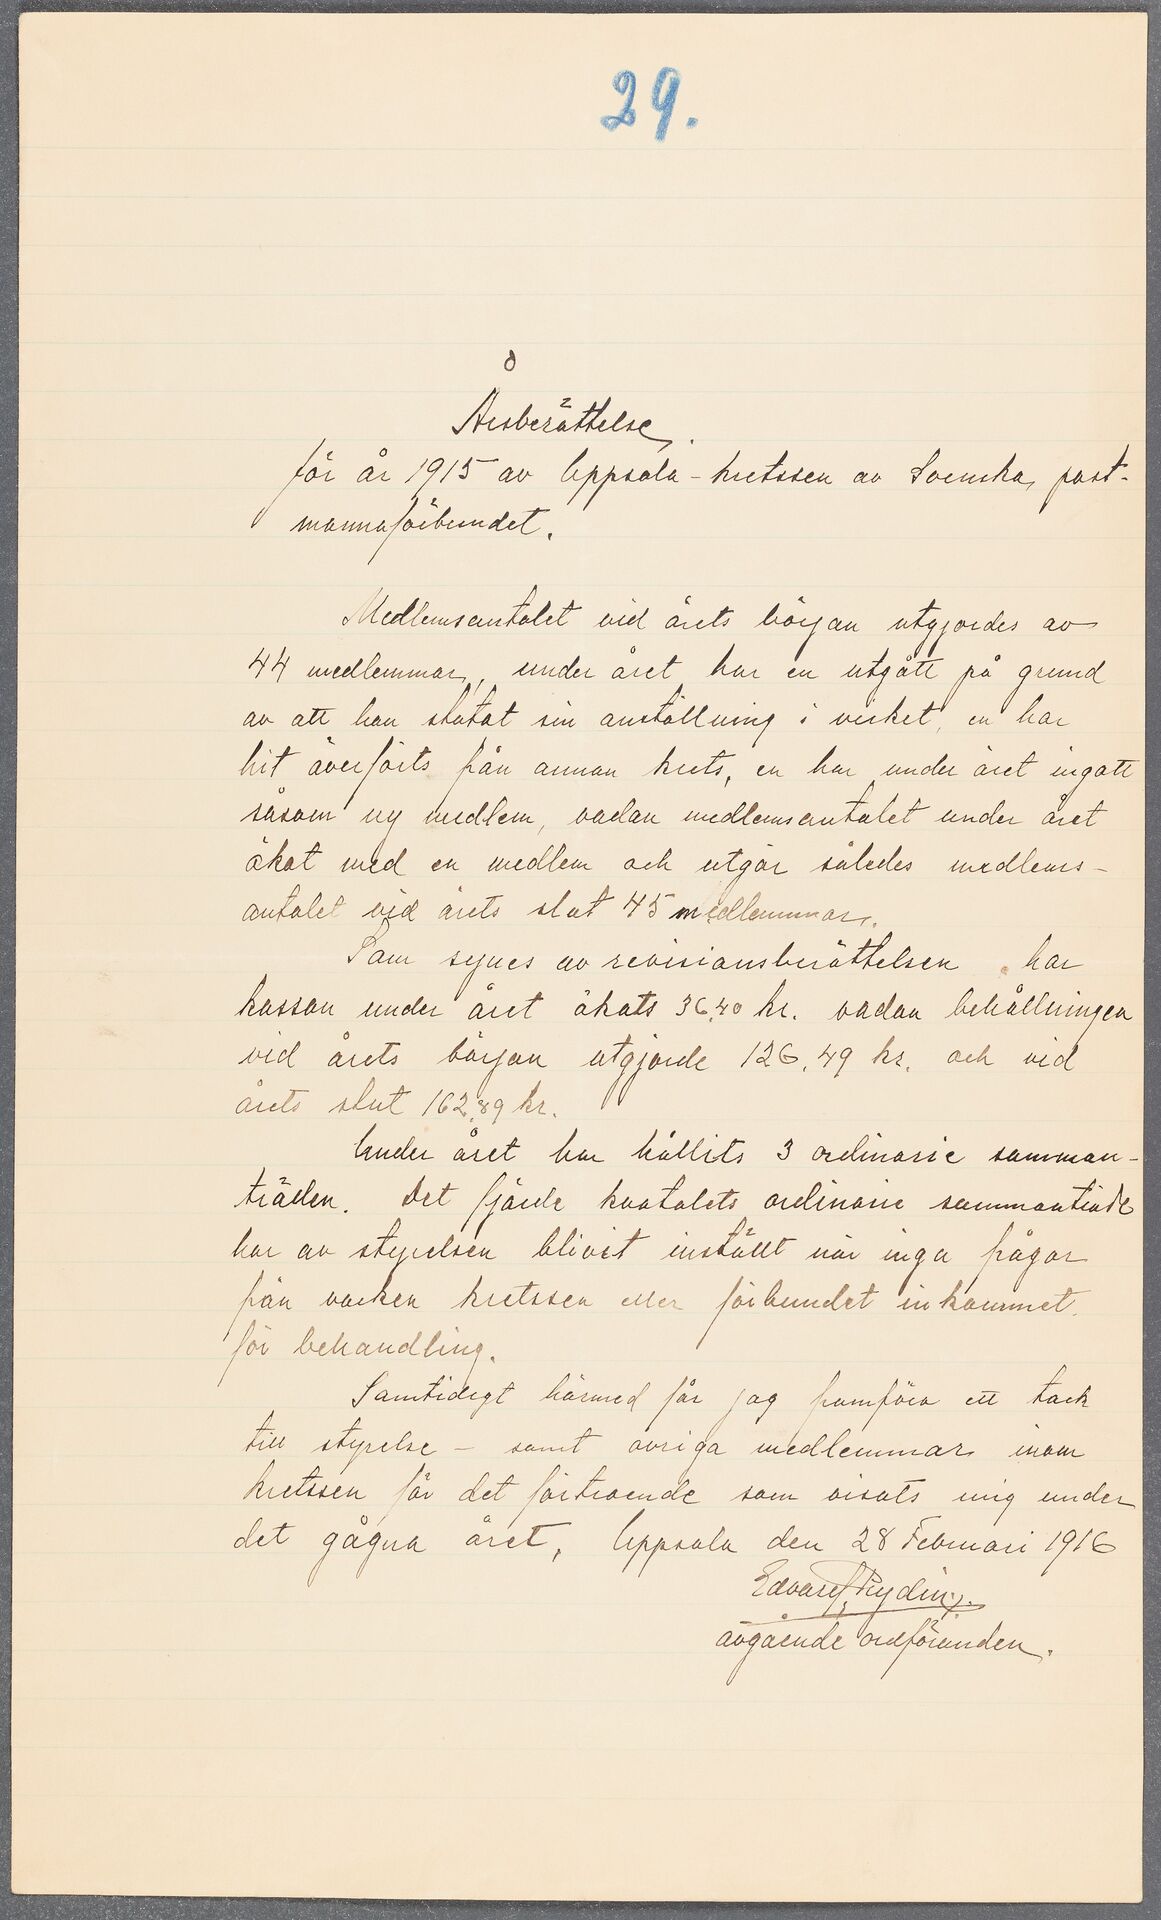 29.
Årsberättelse.
för år 1915 av Uppsala-kretssen av Svenska post-
mannaförbundet.
Medlemsantalet vid årets början utgjordes av
44 medlemmar, under året har en utgått på grund
av att han slutat sin anställning i verket, en har
hit överförts från annan krets, en har under året ingått
såsom ny medlem, vadan medlemsantalet under året
ökat med en medlem och utgör således medlems-
antalet vid årets slut 45 medlemmar.
Som synes av revisionsberättelsen har
kassan under året ökats 36,40 kr. vadan behållningen
vid årets början utgjorde 126,49 kr. och vid
årets slut 162,89 kr.
Under året har hållits 3 ordinarie samman-
träden. Det fjärde kvatalets ordinarie sammanträde
har av styrelsen blivit inställt när inga frågor
från varken kretssen eller förbundet inkommet
för behandling.
Samtidigt härmed får jag framföra ett tack
till styrelse - samt övriga medlemmar inom
kretssen för det förtroende som visats mig under
det gågna året, Uppsala den 28 Februari 1916
Edvard Ryding.
avgående ordföranden.